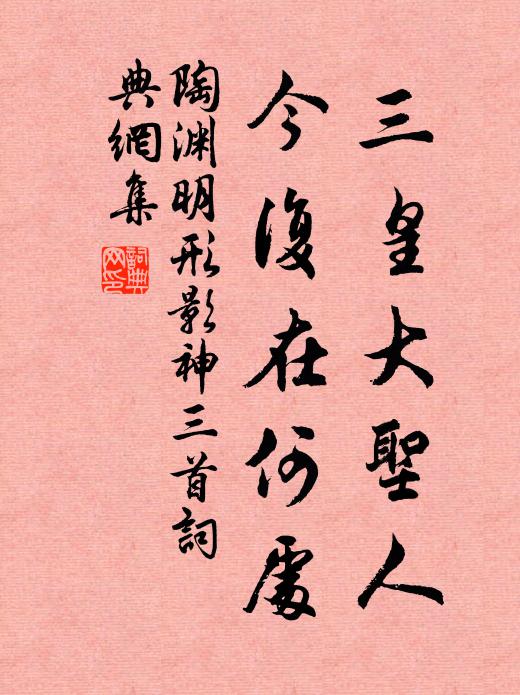 三皇大聖人
今復在何處
陶渊明形影神三首詞
典網集
詞典
网印